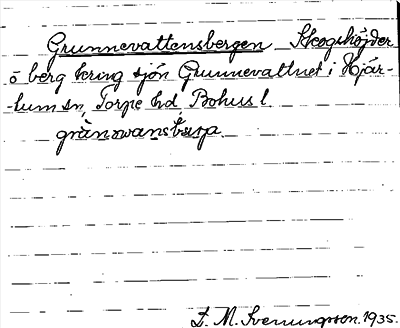 Grunnevattensbergen Skogshöjder
o berg kring sjön Grunnevattnet i Hjär-
-tum sn, Torpe hd, Bohusl.
Z. M. Svenungsson. 1935.